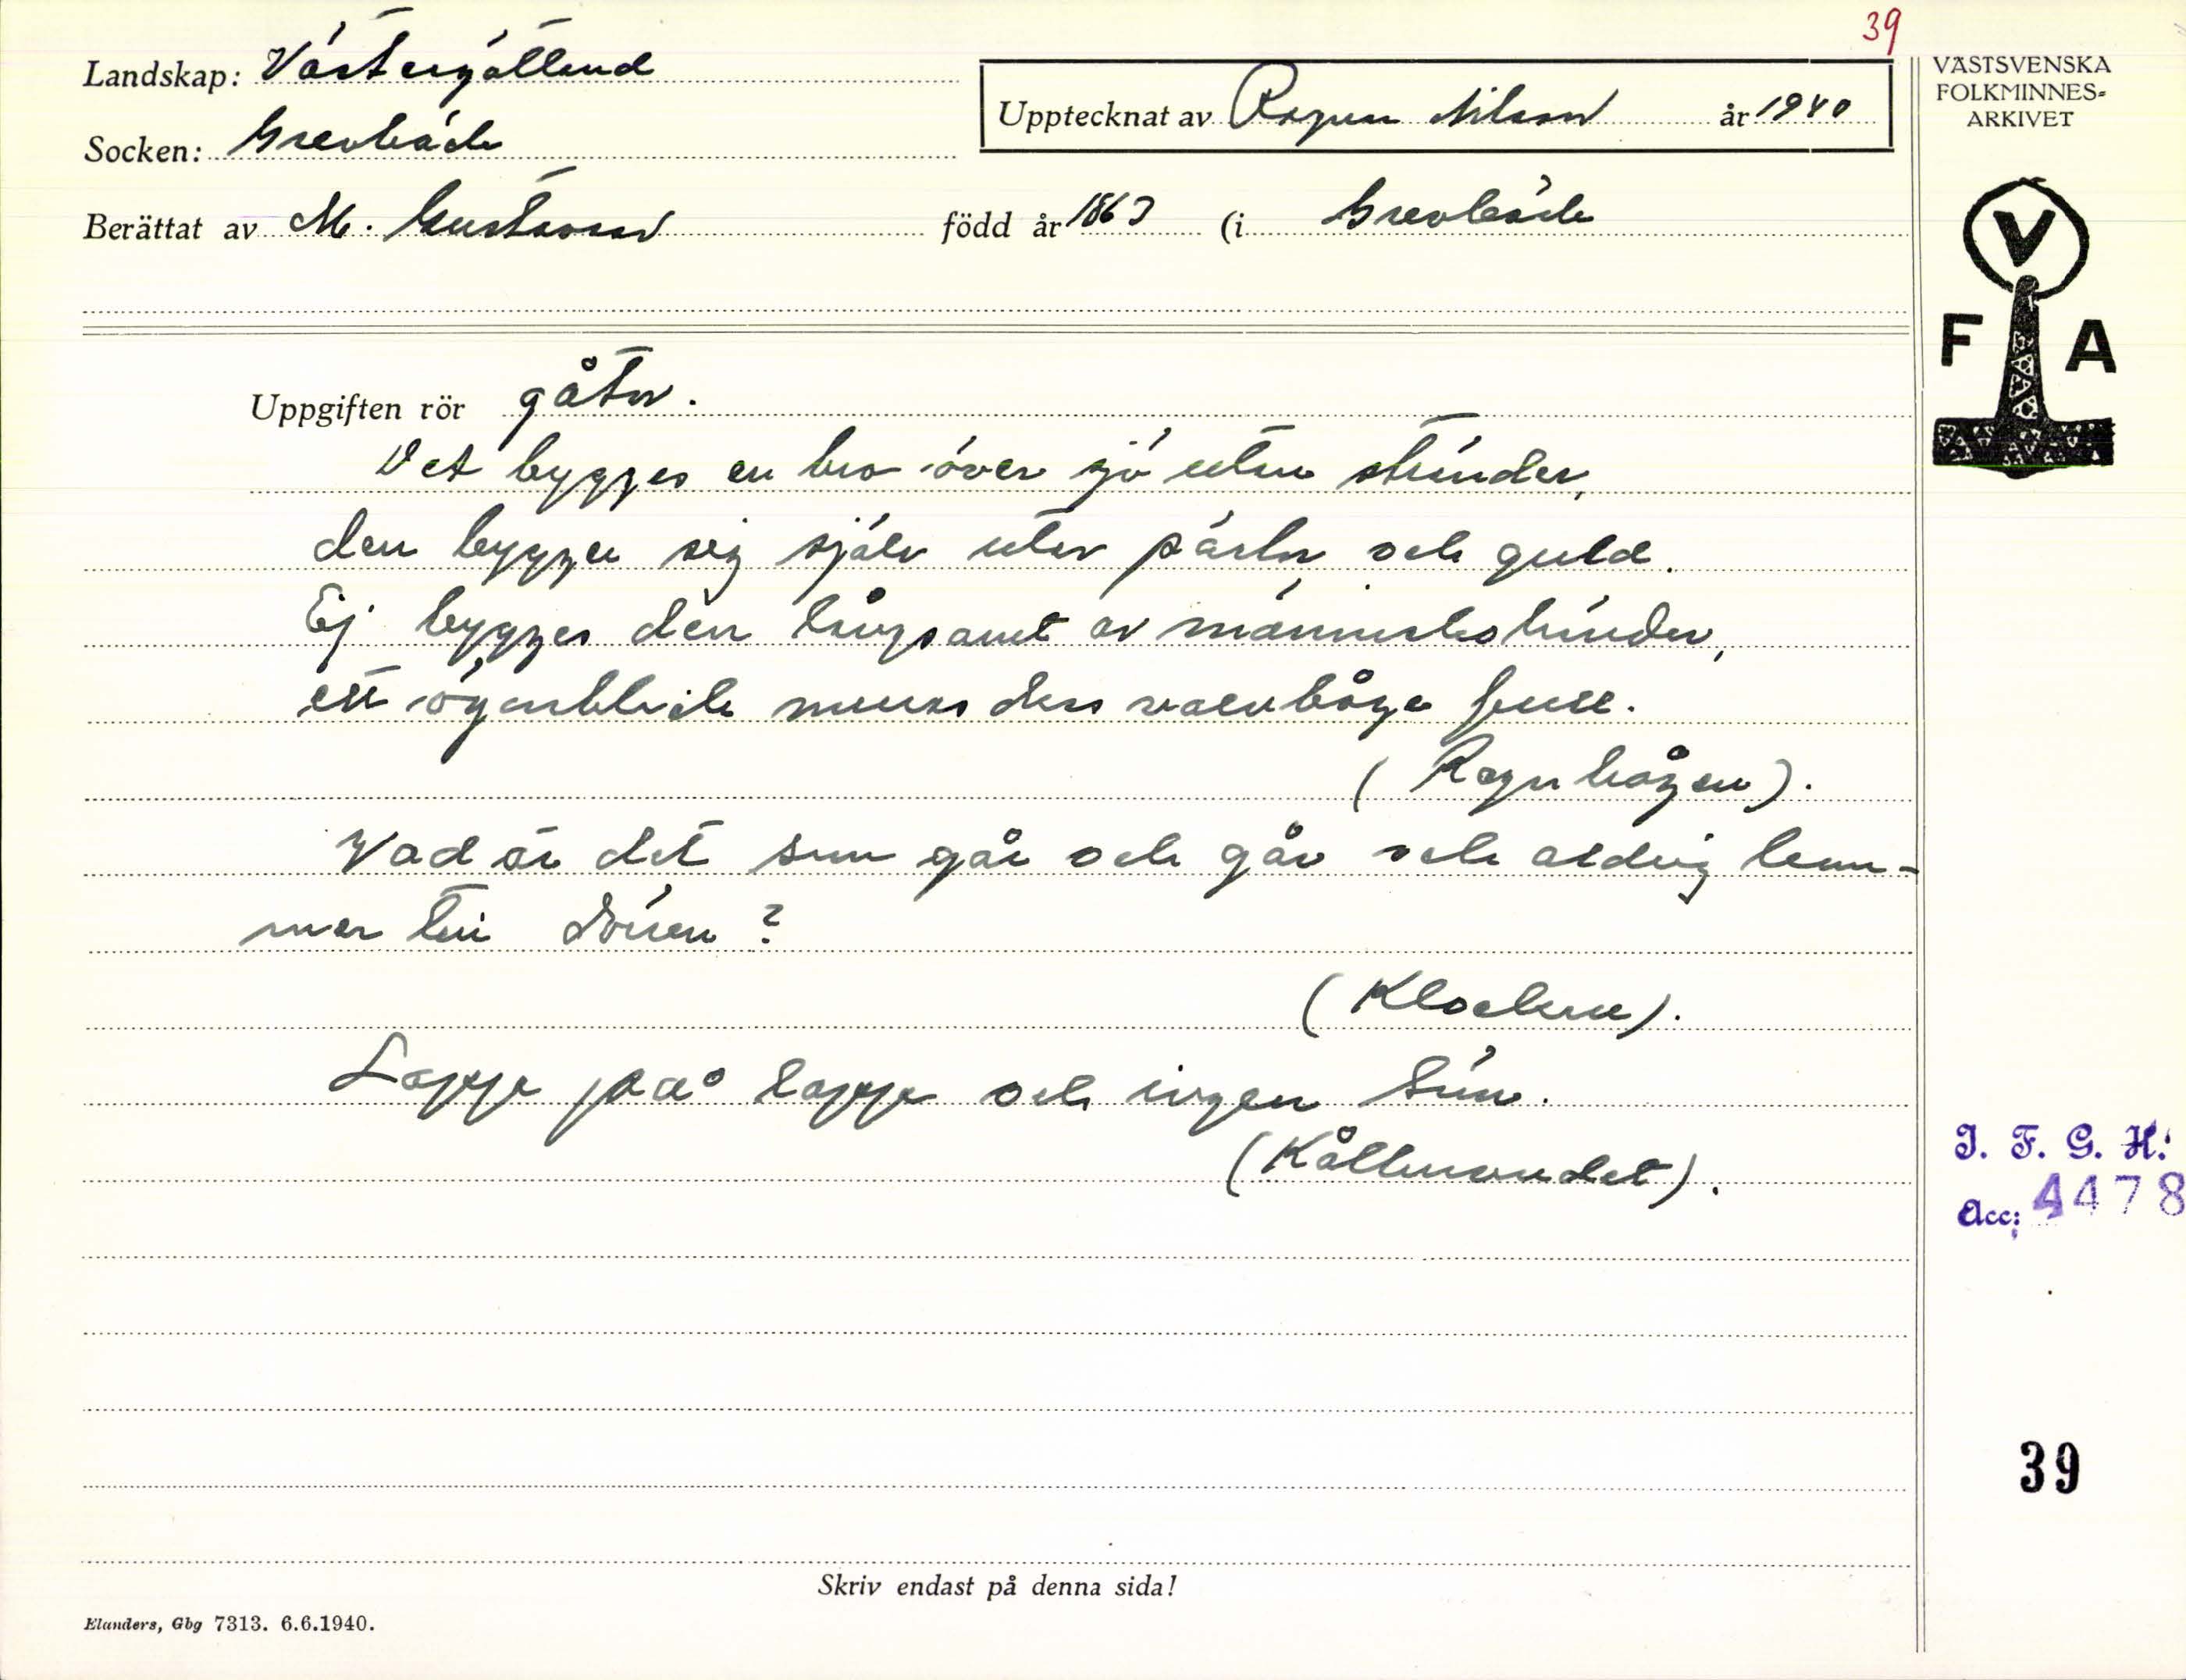 39
Landskap: Västergötland
Upptecknat av Ragnar Nilsson år 1940
VÄSTSVENSKA
FOLKMINNES-
ARKIVET
Socken: Grevbäck
Berättat av M. Gustavsson född år 1863 (i Grevbäck
V
F A
Uppgiften rör gåtor.
Det bygges en bro över sjö utan stränder,
den bygger sig själv utav pärlor och guld.
Ej bygges den långsamt av människohänder,
ett ögonblick mura dess valvbåge full.
(Regnbågen).
Vad är det som går och går och aldrig kom-
mer till dörren?
(Klockan).
Lapp på lapp och ingen söm.
(Kålhuvudet).
I. F. G. H:
Acc: 4478
39
Skriv endast på denna sida!
Elanders, Gbg 7313. 6.6.1940.